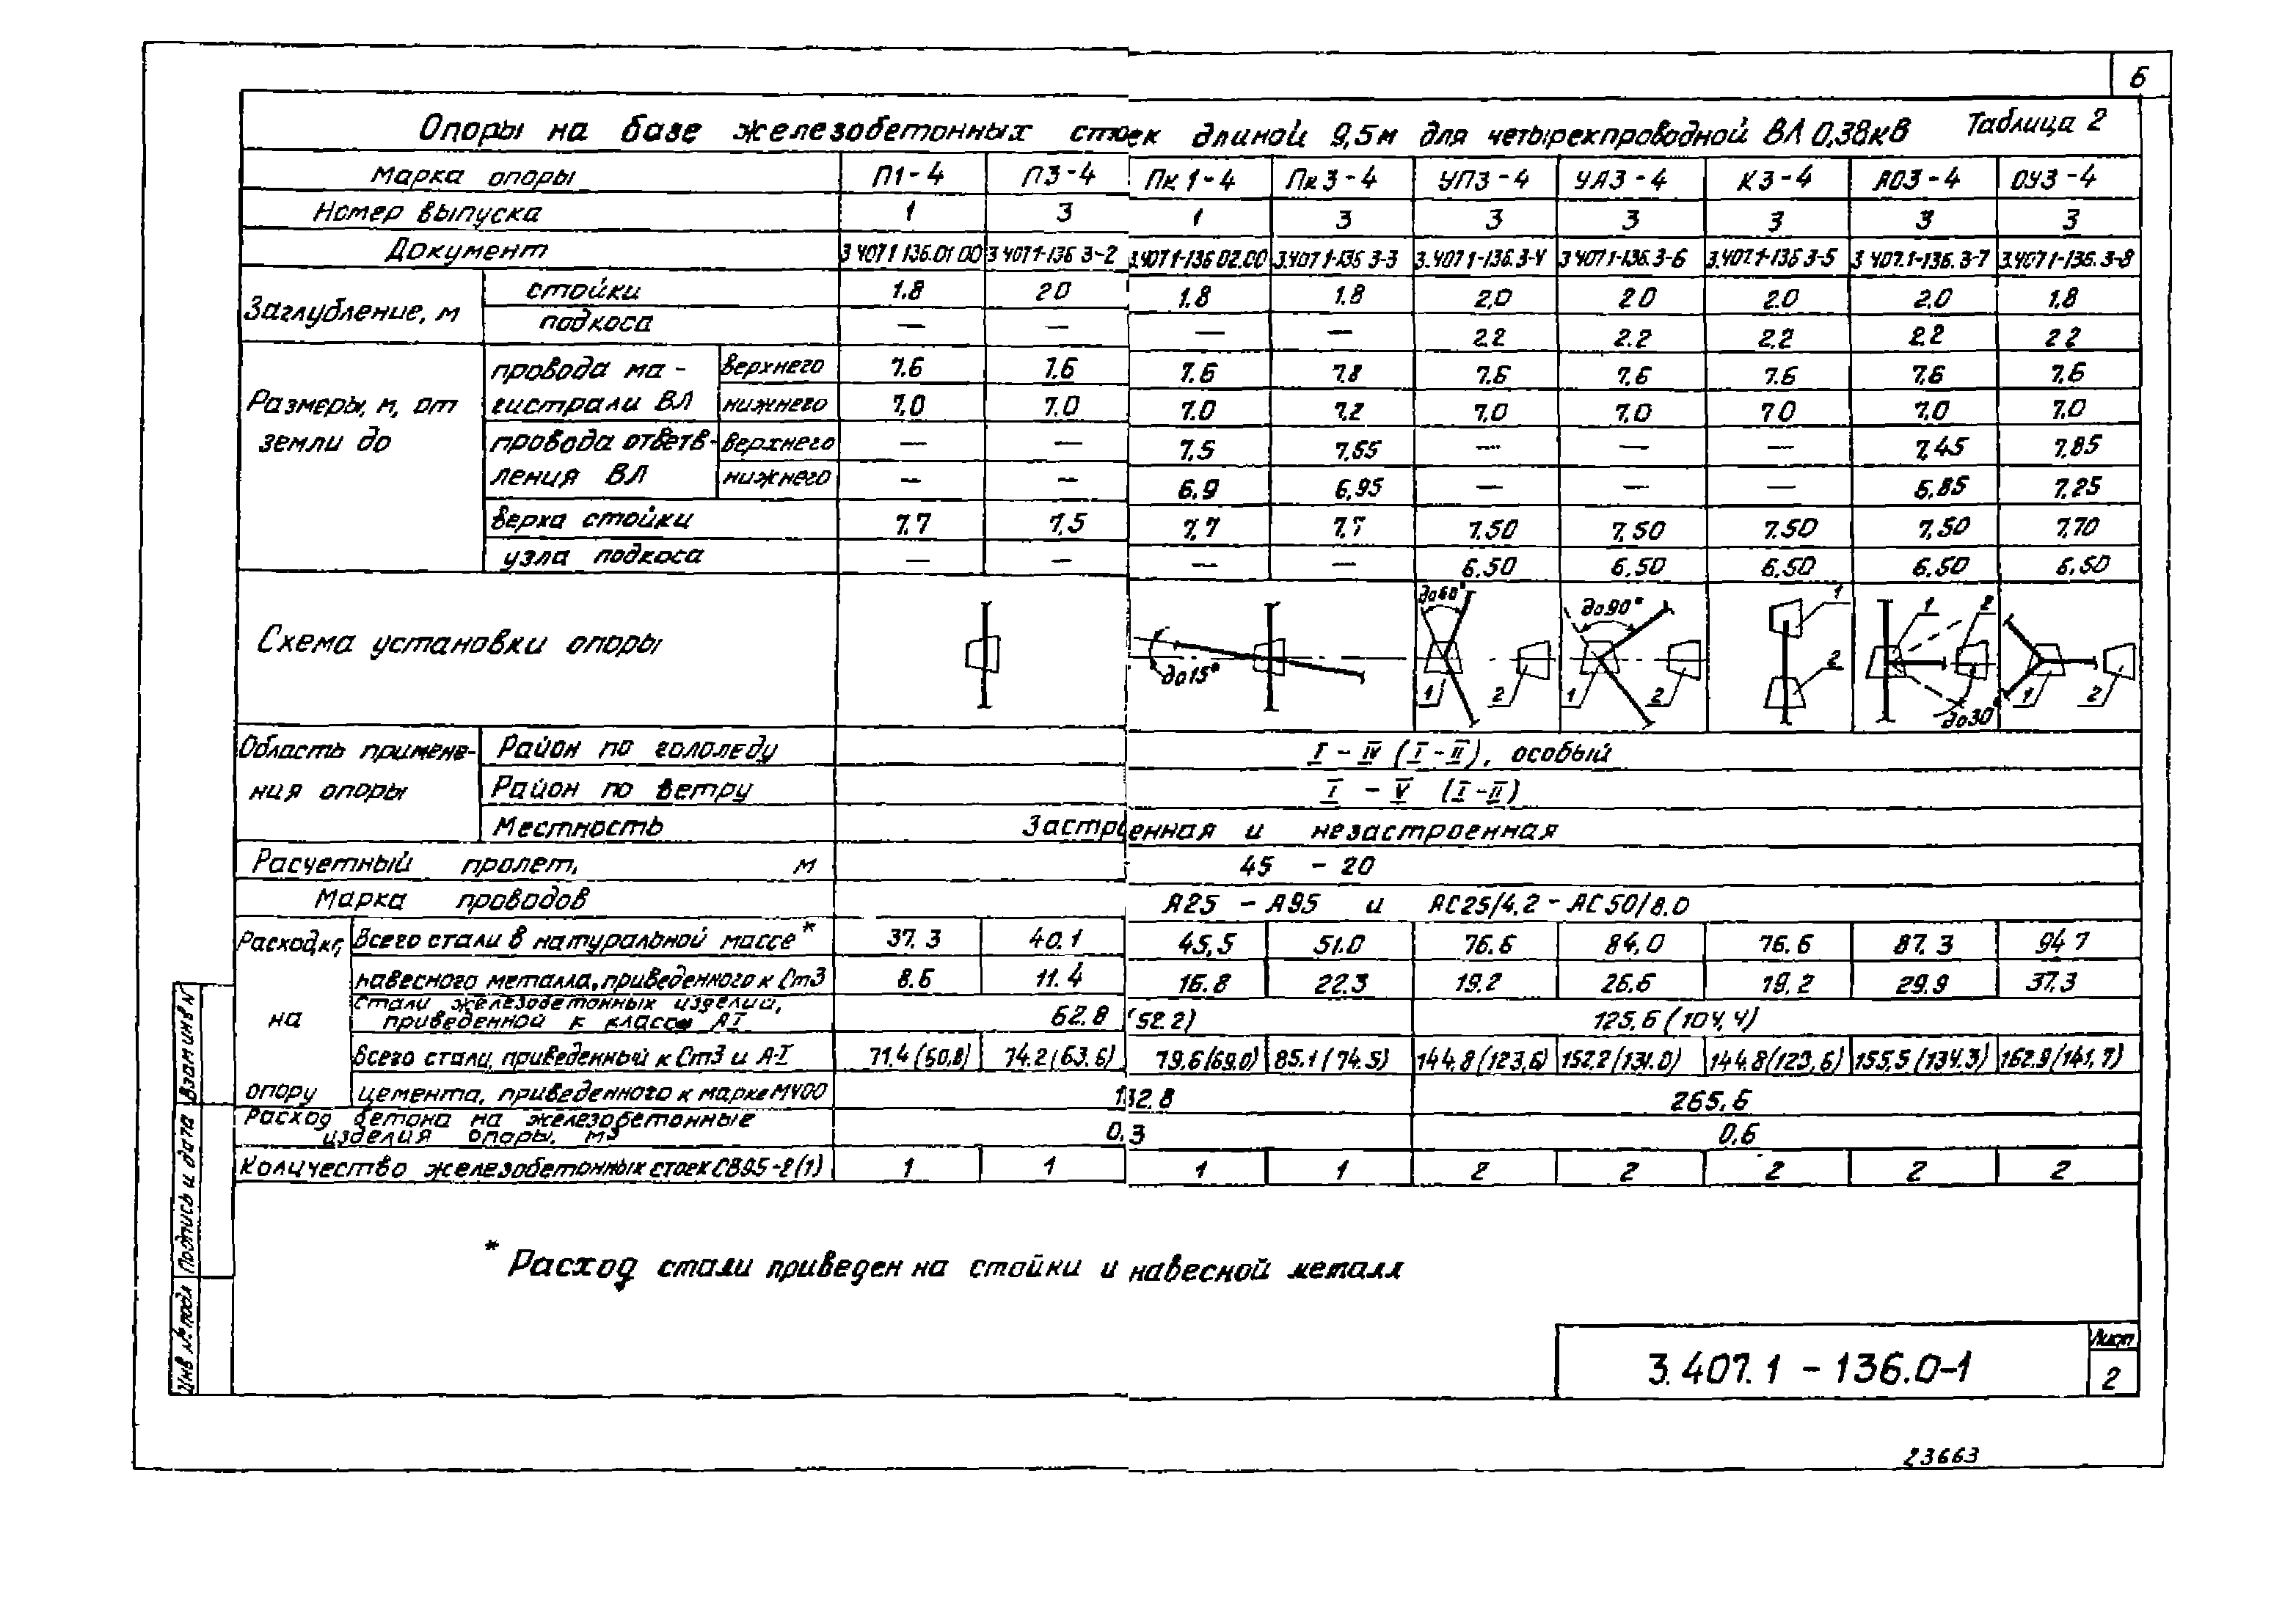 6
Опоры на базе железобетонных стоек длиной 9,5м для четырехпроводной ВЛ 0,38кВ Таблица 2
Марка опоры П1-4 П3-4 Пк1-4 Пк3-4 УП3-4 УА3-4 К3-4 АО3-4 ОУ3-4
Номер выпуска 1 3 1 3 3 3 3 3 3
Документ 3.407.1-136.01.00 3.407.1-136.3-2 3.407.1-136.02.00 3.407.1-136.3-3 3.407.1-136.3-4 3.407.1-136.3-6 3.407.1-136.3-5 3.407.1-136.3-7 3.407.1-136.3-8
Заглубление, м стойки 1.8 2.0 1.8 1.8 2,0 2.0 2.0 2.0 1.8
подкоса — — — — 2.2 2.2 2.2 2.2 2.2
Размеры, м, от земли до провода магистрали ВЛ верхнего 7.6 7.6 7.6 7.8 7.6 7.6 7.6 7.6 7.6
нижнего 7,0 7.0 7.0 7.2 7.0 7.0 7.0 7.0 7.0
провода ответвления ВЛ верхнего — — 7.5 7,55 — — — 7,45 7,85
нижнего — — 6.9 6,95 — — — 6.85 7.25
верха стойки 7.7 7,5 7,7 7,7 7.50 7,50 7.50 7,50 7,70
узла подкоса — — — — 6.50 6.50 6.50 6.50 6.50
Схема установки опоры
до15°
до60° 1 2
до90° 1 2
1 2
1 2 до30°
1 2
Область применения опоры Район по гололеду I - IV (I-II), особый
Район по ветру I - V (I-II)
Местность Застроенная и незастроенная
Расчетный пролет, м 45 - 20
Марка проводов А25 - А95 и АС25/4,2 - АС50/8.0
Расход, кг, на опору Всего стали в натуральной массе* 37.3 40.1 45,5 51.0 76.6 84,0 76.6 87.3 94.7
навесного металла, приведенного к Ст3 8.6 11.4 16.8 22.3 19.2 26.6 19.2 29.9 37.3
Стали железобетонных изделий, приведенной к классу АI 62.8 (52.2) 125,6 (104,4)
Всего стали, приведенный к Ст3 и А-I 71.4 (60,8) 74.2 (63.6) 79.6 (69.0) 85.1 (74.5) 144,8 (123,6) 152,2 (131.0) 144.8 (123,6) 155,5 (134.3) 162.9 (141,7)
цемента, приведенного к марке М400 132,8 265,6
Расход бетона на железобетонные изделия опоры, м3 0,3 0,6
Количество железобетонных стоек СВ95-2(1) 1 1 1 1 2 2 2 2 2
* Расход стали приведен на стойки и навесной металл
Инв № подл Подпись и дата Взам инв N
3.407.1 - 136.0-1
Лист
2
23663